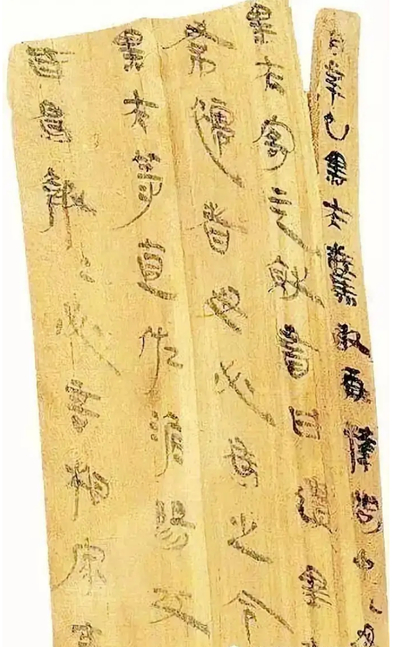 二月辛巳黑夫驚敢再拜問中母
黑夫寄益就書曰遺黑夫
帬襦者母必為之令
黑夫等直佐淮陽攻
皆為報=必言相家爵